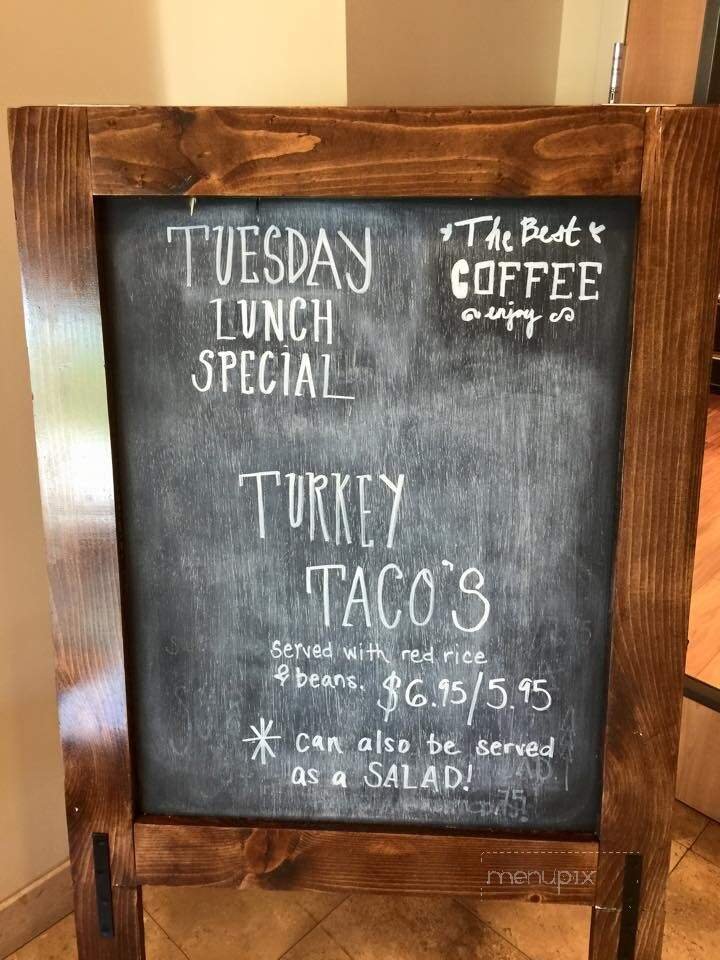 TUESDAY
LUNCH
SPECIAL
The Best
COFFEE
enjoy
TURKEY
TACO'S
Served with red rice
& beans. $6.95/5.95
* can also be served
as a SALAD!
menupix